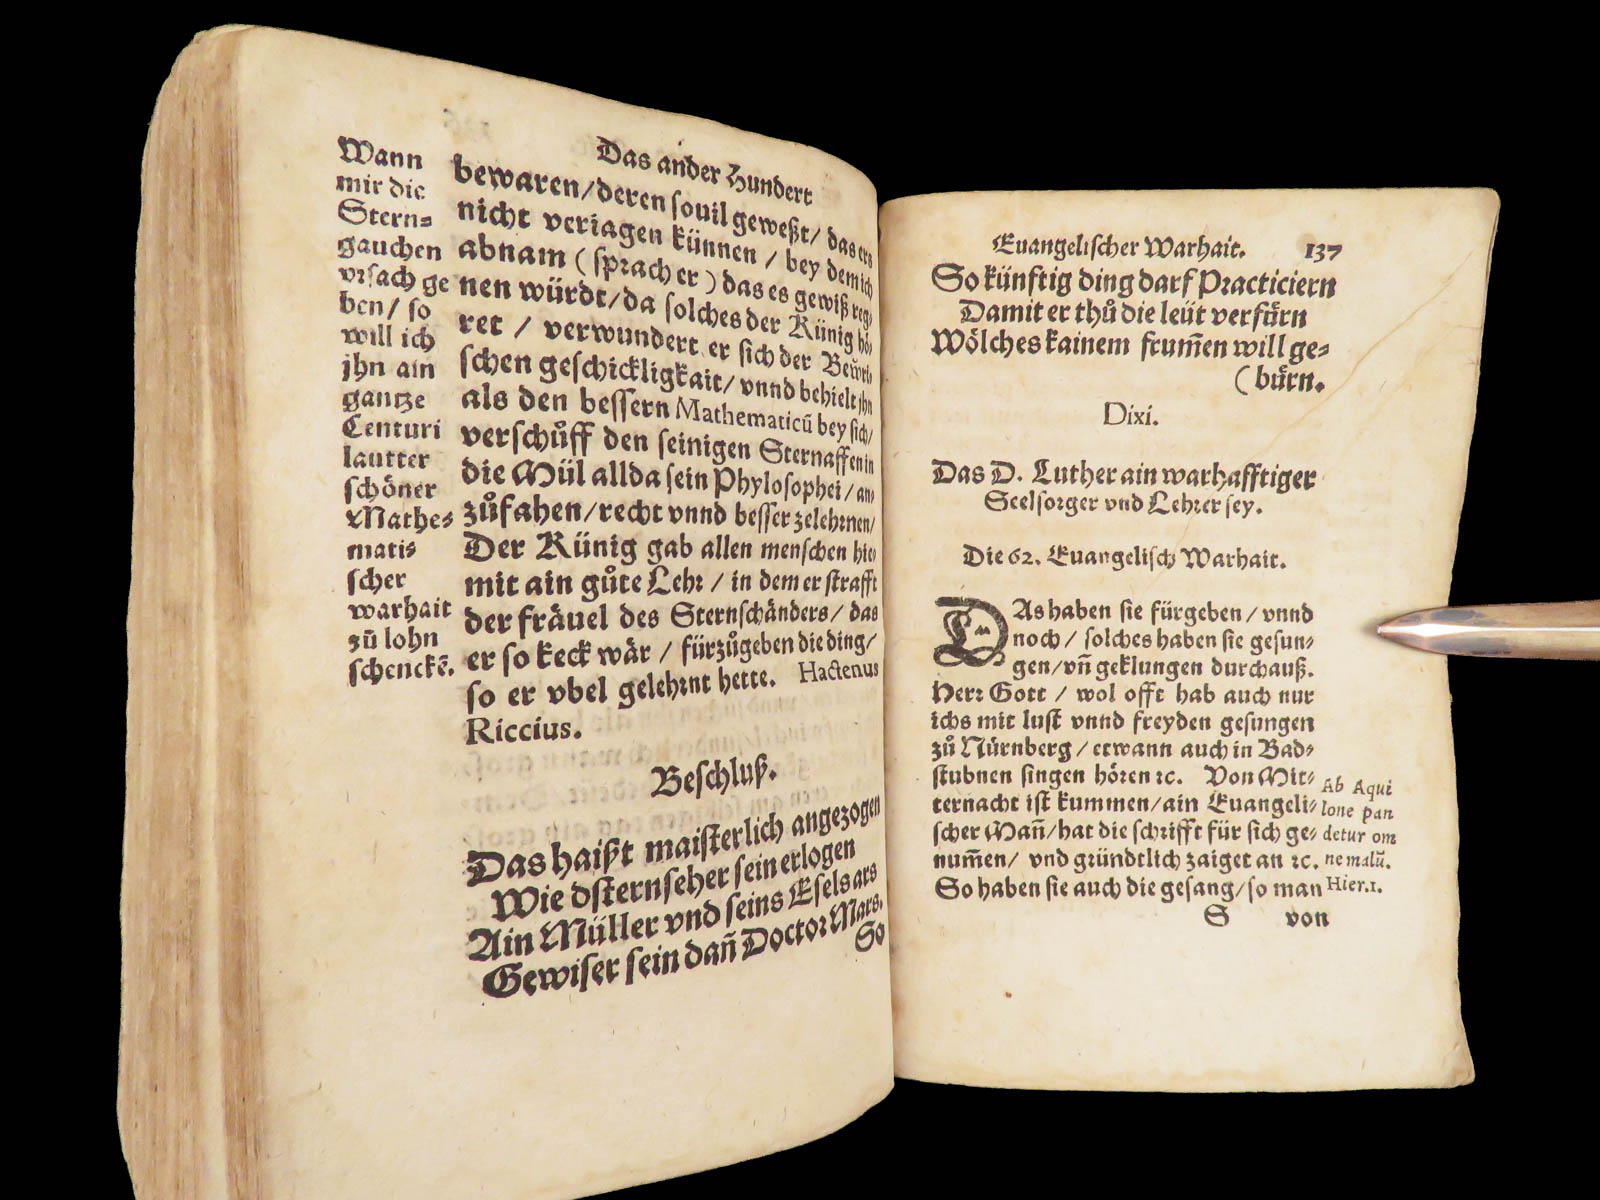 Das ander Hundert
Wann
mir die
Stern⸗
gauchen
vrsach ge
ben/ so
will ich
jhn ain
gantze
Centuri
lautter
schöner
Mathe⸗
matis⸗
scher
warhait
zů lohn
schenckẽ.
bewaren/deren souil geweßt/ das ers
nicht veriagen künnen / bey dem ich
abnam ( sprach er ) das es gewiß reg⸗
nen würdt/da solches der Künig hö⸗
ret / verwundert er sich der
schen geschickligkait/ vnnd behielt jhn
als den bessern Mathematicũ bey sich/
verschůff den seinigen Sternaffen in
die Mül allda sein Phylosophei/an⸗
zůfahen/recht vnnd besser zelehrnen/
Der Künig gab allen menschen hie⸗
mit ain gůte Lehr / in dem er strafft
der fräuel des Sternschänders/ das
er so keck wär / fürzůgeben die ding/
so er vbel gelehrnt hette. Hactenus
Riccius.
Beschluß.
Das haißt maisterlich angezogen
Wie dsternseher sein erlogen
Ain Müller vnd seins Esels ars
Gewiser sein dañ Doctor Mars.
So
Euangelischer Warhait. 137
So künftig ding darf Practiciern
Damit er thů die leüt verfüern
Wölches kainem frum̃en will ge⸗
( büern.
Dixi.
Das D. Luther ain warhafftiger
Seelsorger vnd Lehrer sey.
Die 62. Euangelisch Warhait.
DAs haben sie fürgeben / vnnd
noch / solches haben sie gesun⸗
gen/vñ geklungen durchauß.
Herr Gott / wol offt hab auch nur
ichs mit lust vnnd freyden gesungen
zů Nürnberg / etwann auch in Bad⸗
stubnen singen hören ꝛc. Von Mit⸗
ternacht ist kummen/ain Euangeli⸗
scher Mañ/hat die schrifft für sich ge⸗
num̃en/ vnd gründtlich zaiget an ꝛc.
So haben sie auch die gesang/so man
Ab Aqui
lone pan
detur om
ne malũ.
Hier.1.
S von